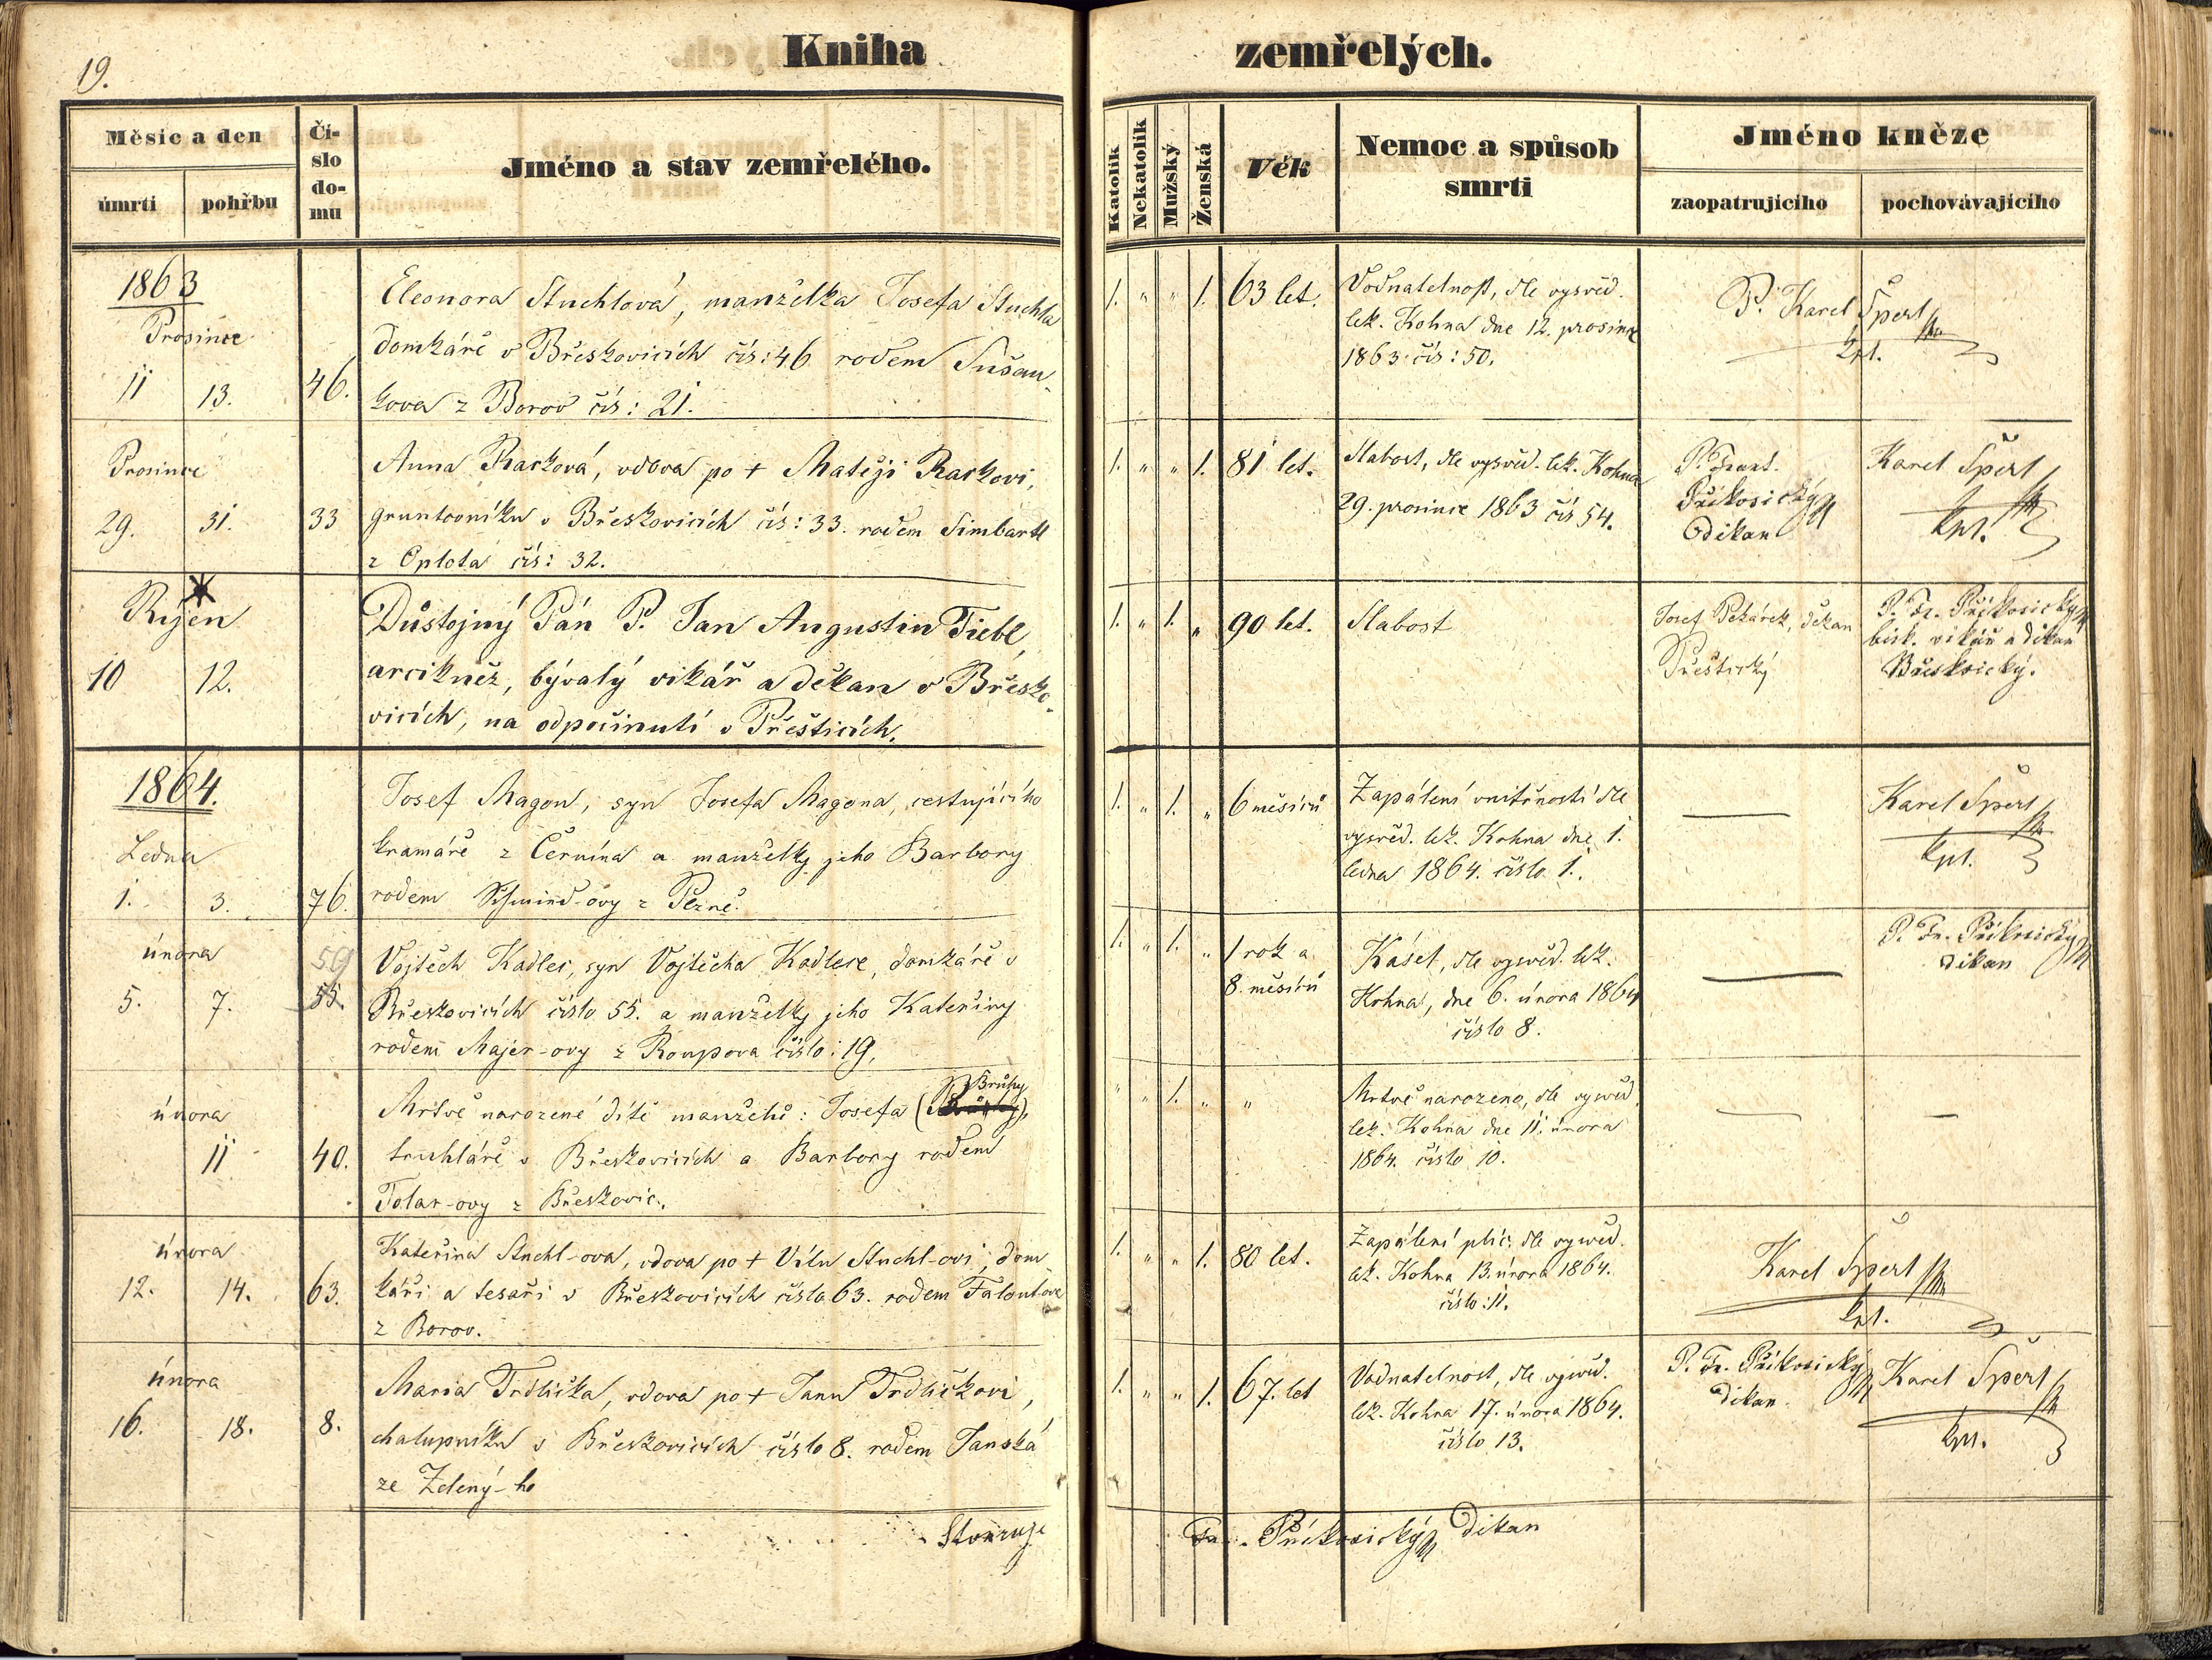 19.
Kniha zemřelých.
Měsíc a den
úmrtí
pohřbu
Čí-
slo
do-
mu
Jméno a stav zemřelého.
Katolík
Nekatolík
Mužský
Ženská
Věk
Nemoc a spůsob
smrti
Jméno kněze
zaopatrujícího
pochovávajícího
1863
Prosince
11 13. 46.
Eleonora Stuchlová, manželka Josefa Stuchla
domkáře v Břeskovicích čís: 46 rodem Sušan-
kova z Borov čís: 21.
1. " " 1. 63 let.
Vodnatelnost, dle vysvěd.
lek. Kohna dne 12. prosince
1863 čís: 50.
P. Karel Šperl
kpl.
Prosince
29. 31. 33
Anna Racková, vdova po + Matěji Rackovi,
gruntovníku v Břeskovicích čís: 33. rodem Simbartl
z Oplota čís: 32.
1. " " 1. 81 let.
Slabost, dle vysvěd. lek. Kohna
29. prosince 1863 čís 54.
P. Frant.
Příkosický
Děkan
Karel Šperl
kpl.
Říjen
10 12.
Důstojný Pán P. Jan Augustin Tiebl,
arcikněz, bývalý vikář a děkan v Břesko-
vicích, na odpočinutí v Přešticích.
1. " 1. " 90 let.
Slabost
Josef Pekárek, děkan
Přeštický
P. Fr. Příkosický
bisk. vikář a děkan
Břeskvický.
1864.
Ledna
1. 3. 76.
Josef Magon, syn Josefa Magona, cestujícího
kramáře z Černína a manželky jeho Barbory
rodem Schmind-ovy z Plzně.
1. " 1. " 6 měsíců
Zapálení vnitřností dle
vysvěd. lek. Kohna dne 1.
ledna 1864. číslo 1.
Karel Šperl
kpl.
února
5. 7. 59 55.
Vojtěch Kadlec, syn Vojtěcha Kadlece, domkáře v
Břeskovicích číslo 55. a manželky jeho Kateřiny
rodem Majer-ovy z Roupova číslo: 19.
1. " 1. " 1 rok a
8. měsíců
Kašel, dle vysvěd. lek.
Kohna, dne 6. února 1864
číslo 8.
P. Fr. Příkosický
děkan
února
11 40.
Mrtvě narozené dítě manželů: Josefa (Brůhy),
truhláře v Břeskovicích a Barbory rodem
Tolar-ovy z Břeskovic.
" " 1. " "
Mrtvě narozeno, dle vysvěd.
lek. Kohna dne 11. února
1864. číslo 10.
února
12. 14. 63.
Kateřina Stuchl-ova, vdova po + Vítu Stuchl-ovi, dom-
káři a tesaři v Břeskovicích číslo 63. rodem Faloutova
z Borov.
1. " " 1. 80 let.
Zapálení plic: dle vysvěd.
lek. Kohna 13. února 1864.
číslo: 11.
Karel Šperl
kpl.
února
16. 18. 8.
Maria Trdlička, vdova po + Janu Trdličkovi,
chalupníku v Břeskovicích číslo 8. rodem Janská
ze Zelený-ho
1. " " 1. 67. let
Vodnatelnost, dle vysvěd.
lek. Kohna 17. února 1864.
číslo 13.
P. Fr. Příkosický
děkan
Karel Šperl
kpl.
Stvrzuje
Fr. Příkosický Děkan